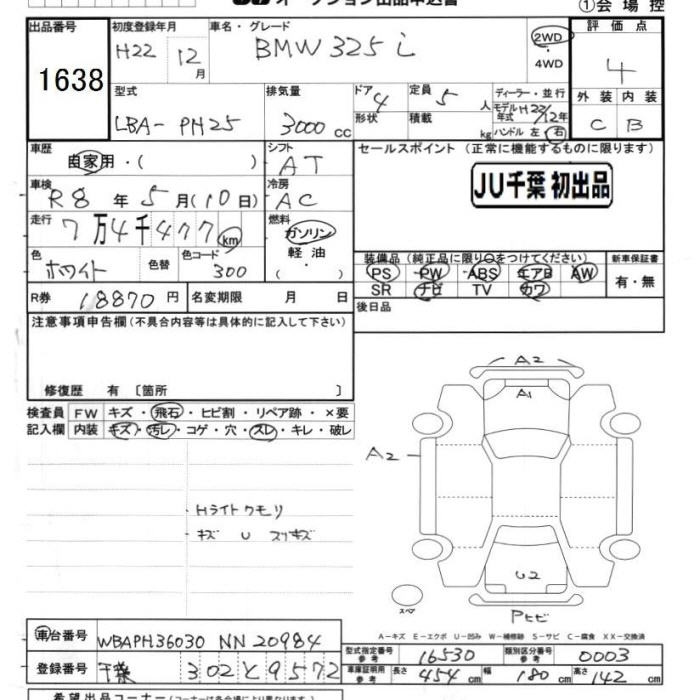 オークション出品申込書
①会場控
出品番号 初度登録年月 車名・グレード 2WD 評価点
1638 H22 12月 BMW 325i ・4WD 4
型式 排気量 ドア 定員 ディーラー・並行 外装 内装
LBA-PH25 3000cc 4 5人 モデル年式 H22/12年 C B
形状 積載 kg ハンドル 左・右
車歴 自家用・( ) シフト AT セールスポイント (正常に機能するものに限ります)
車検 R8年5月(10日) 冷房 AC JU千葉 初出品
走行 7万4千477km 燃料 ガソリン
軽油
( )
色 ホワイト 色替 色コード 300 装備品 (純正品に限り○をつけてください) 新車保証書
PS PW ABS エアB AW 有・無
SR ナビ TV カワ
R券 18870円 名変期限 月 日 後日品
注意事項申告欄 (不具合内容等は具体的に記入して下さい)
修復歴 有 〔箇所 〕
検査員 FW キズ・飛石・ヒビ割・リペア跡・×要
記入欄 内装 キズ・汚レ・コゲ・穴・スレ・キレ・破レ
A2
A1
A2
Hライトクモリ
キズ U スリキズ
U2
スペア Pヒビ
A-キズ E-エクボ U-凹み W-補修跡 S-サビ C-腐食 XX-交換済
車台番号 WBAPH36030 NN20984 型式指定番号 参考 16530 類別区分番号 参考 0003
登録番号 千葉 302 と 9572 車庫証明用 参考 長さ 454cm 幅 180cm 高さ 142cm
希望出品コーナー